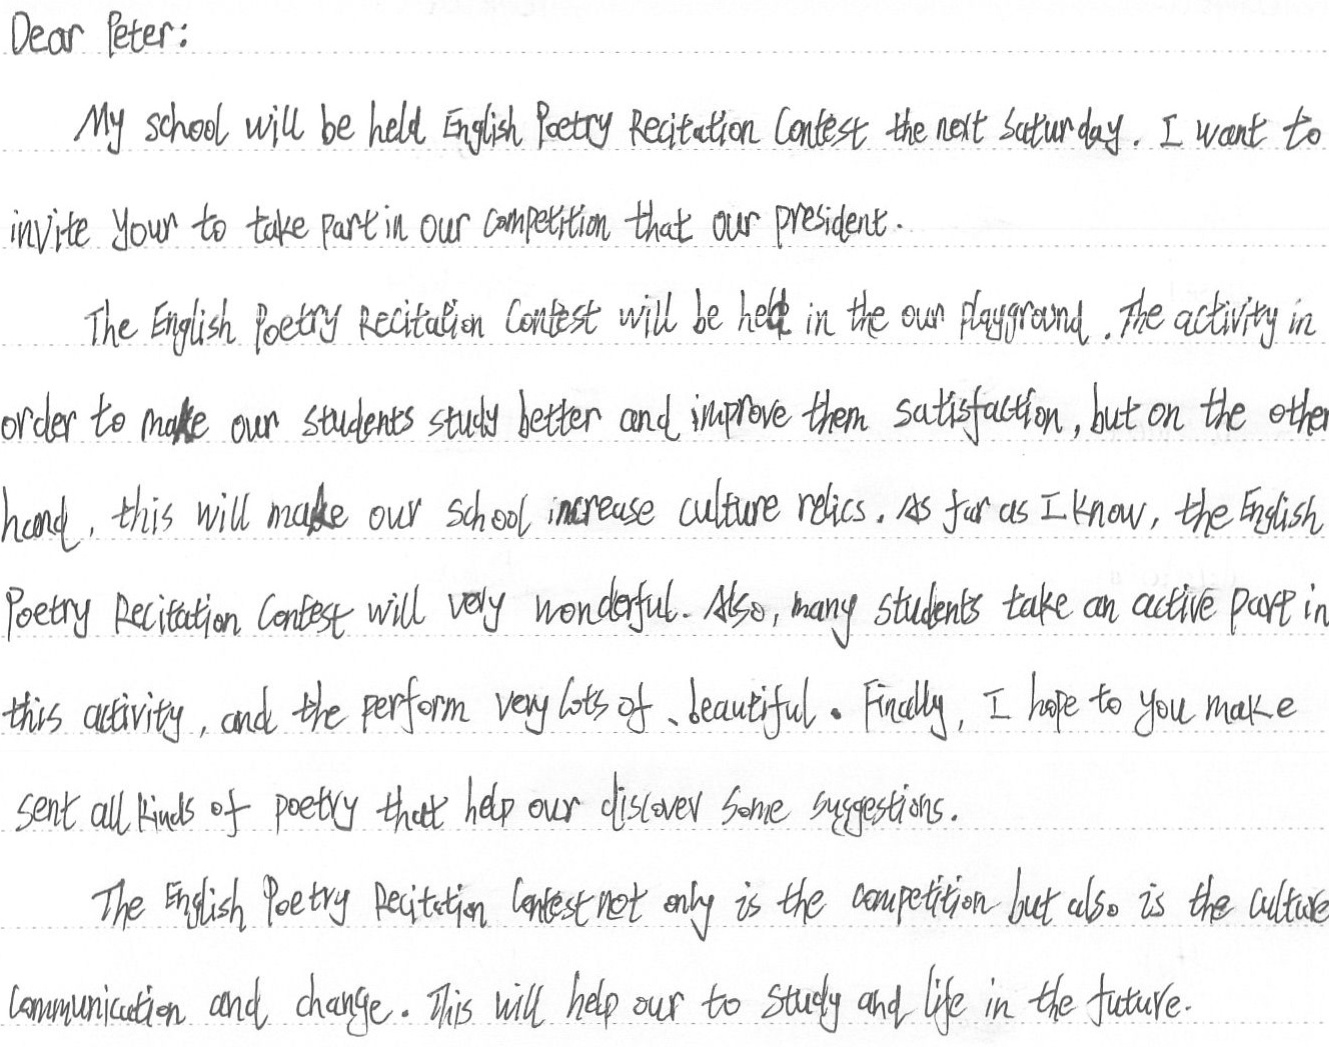 Dear Peter:
My school will be held English Poetry Recitation Contest the next Saturday. I want to
invite your to take part in our competition that our president.
The English Poetry Recitation Contest will be held in the our playground. The activity in
order to make our students study better and improve them satisfaction, but on the other
hand, this will make our school increase culture relics. As far as I know, the English
Poetry Recitation Contest will very wonderful. Also, many students take an active part in
this activity, and the perform very lots of 、beautiful. Finally, I hope to you make
sent all kinds of poetry that help our discover some suggestions.
The English Poetry Recitation Contest not only is the competition but also is the culture
communication and change. This will help our to study and life in the future.